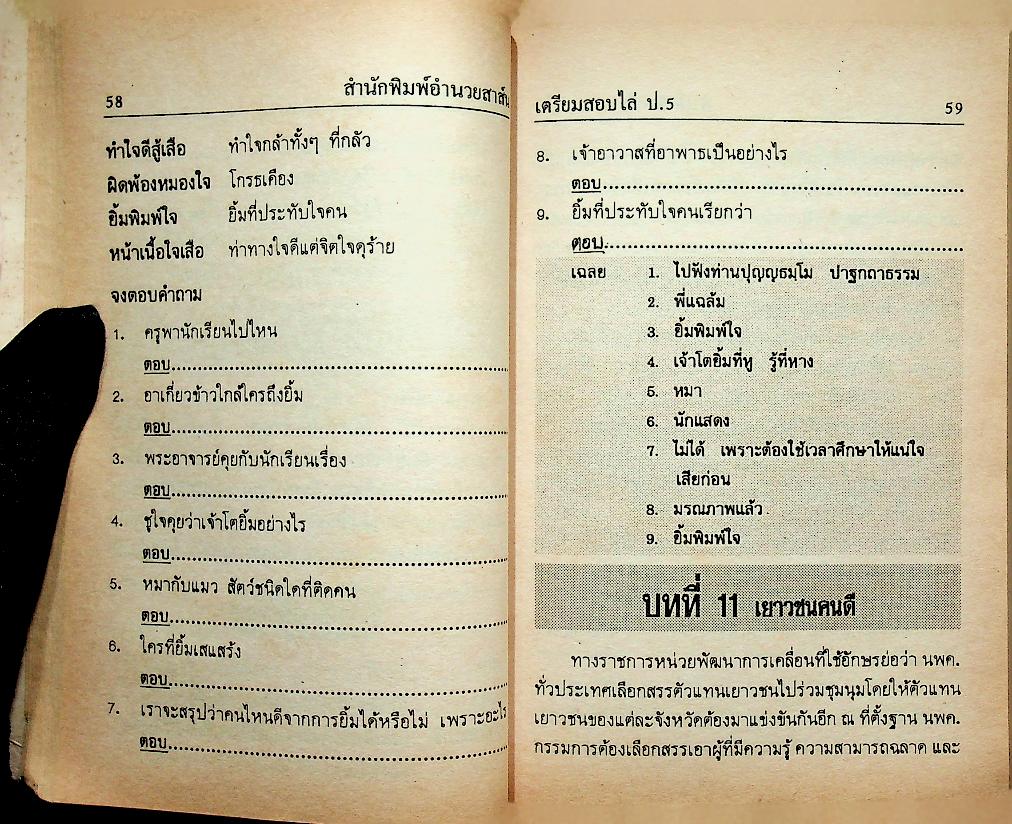 58
สำนักพิมพ์อำนวยสาส์น
ทำใจดีสู้เสือ ทำใจกล้าทั้งๆ ที่กลัว
ผิดพ้องหมองใจ โกรธเคือง
ยิ้มพิมพ์ใจ ยิ้มที่ประทับใจคน
หน้าเนื้อใจเสือ ท่าทางใจดีแต่จิตใจดุร้าย
จงตอบคำถาม
1. ครูพานักเรียนไปไหน
ตอบ........................................
2. อาเกี่ยวข้าวใกล้ใครถึงยิ้ม
ตอบ........................................
3. พระอาจารย์คุยกับนักเรียนเรื่อง
ตอบ........................................
4. ชูใจคุยว่าเจ้าโตยิ้มอย่างไร
ตอบ........................................
5. หมากับแมว สัตว์ชนิดใดที่ติดคน
ตอบ........................................
6. ใครที่ยิ้มเสแสร้ง
ตอบ........................................
7. เราจะสรุปว่าคนไหนดีจากการยิ้มได้หรือไม่ เพราะอะไร
ตอบ........................................
เตรียมสอบไล่ ป.5
59
8. เจ้าอาวาสที่อาพาธเป็นอย่างไร
ตอบ........................................
9. ยิ้มที่ประทับใจคนเรียกว่า
ตอบ........................................
เฉลย 1. ไปฟังท่านปุญญธมฺโม ปาฐกถาธรรม
2. พี่แฉล้ม
3. ยิ้มพิมพ์ใจ
4. เจ้าโตยิ้มที่หู รู้ที่หาง
5. หมา
6. นักแสดง
7. ไม่ได้ เพราะต้องใช้เวลาศึกษาให้แน่ใจ
เสียก่อน
8. มรณภาพแล้ว
9. ยิ้มพิมพ์ใจ
บทที่ 11 เยาวชนคนดี
ทางราชการหน่วยพัฒนาการเคลื่อนที่ใช้อักษรย่อว่า นพค.
ทั่วประเทศเลือกสรรตัวแทนเยาวชนไปร่วมชุมนุมโดยให้ตัวแทน
เยาวชนของแต่ละจังหวัดต้องมาแข่งขันกันอีก ณ ที่ตั้งฐาน นพค.
กรรมการต้องเลือกสรรเอาผู้ที่มีความรู้ ความสามารถฉลาด และ